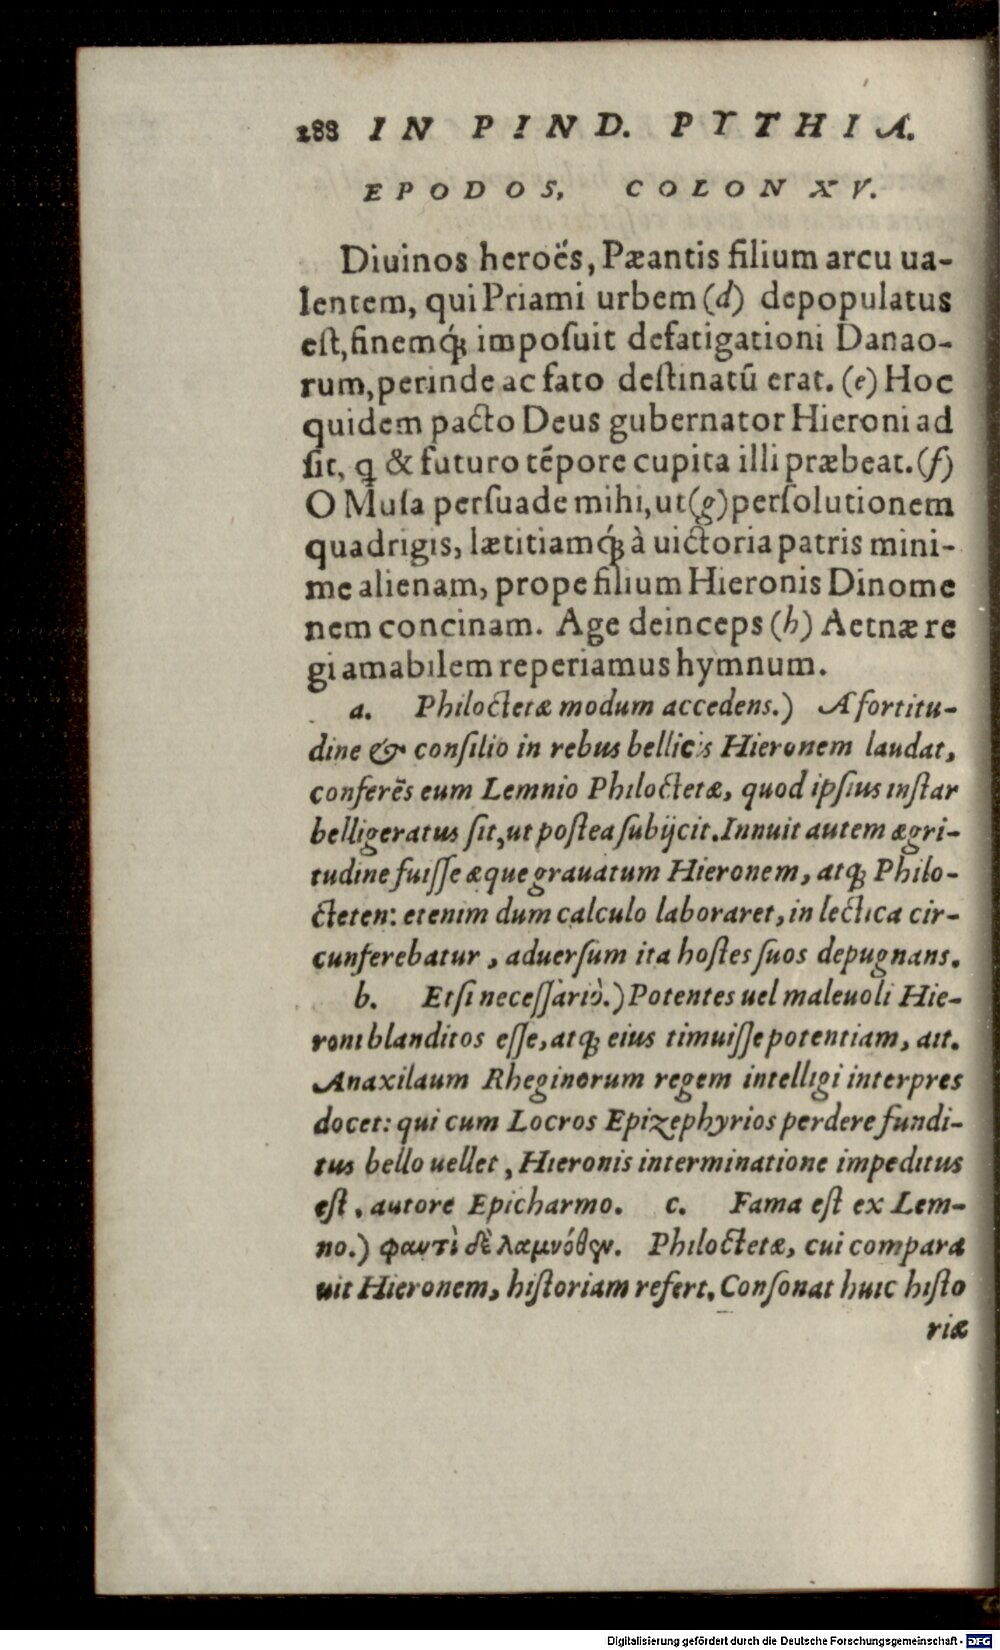 288 IN PIND. PYTHIA.
EPODOS, COLON XV.
Diuinos heroës, Pæantis filium arcu ua-
lentem, qui Priami urbem (d) depopulatus
est, finemq́ꝫ imposuit defatigationi Danao-
rum, perinde ac fato destinatū erat. (e) Hoc
quidem pacto Deus gubernator Hieroni ad
sit, ꝗ & futuro tēpore cupita illi præbeat. (f)
O Musa persuade mihi, ut (g) persolutionem
quadrigis, lætitiamq́ꝫ à uictoria patris mini-
me alienam, prope filium Hieronis Dinome
nem concinam. Age deinceps (h) Aetnæ re
gi amabilem reperiamus hymnum.
a. Philoctetæ modum accedens.) A fortitu-
dine & consilio in rebus bellicis Hieronem laudat,
conferēs eum Lemnio Philoctetæ, quod ipsius instar
belligeratus sit, ut postea subijcit. Innuit autem ægri-
tudine fuisse æque grauatum Hieronem, atqꝫ Philo-
cteten: etenim dum calculo laboraret, in lectica cir-
cunferebatur, aduersum ita hostes suos depugnans.
b. Etsi necessariò.) Potentes uel maleuoli Hie-
roni blanditos esse, atqꝫ eius timuisse potentiam, ait.
Anaxilaum Rheginorum regem intelligi interpres
docet: qui cum Locros Epizephyrios perdere fundi-
tus bello uellet, Hieronis interminatione impeditus
est, autore Epicharmo. c. Fama est ex Lem-
no.) φαντὶ δὲ λαμνόθεν. Philoctetæ, cui compara
uit Hieronem, historiam refert. Consonat huic histo
riæ
Digitalisierung gefördert durch die Deutsche Forschungsgemeinschaft - DFG